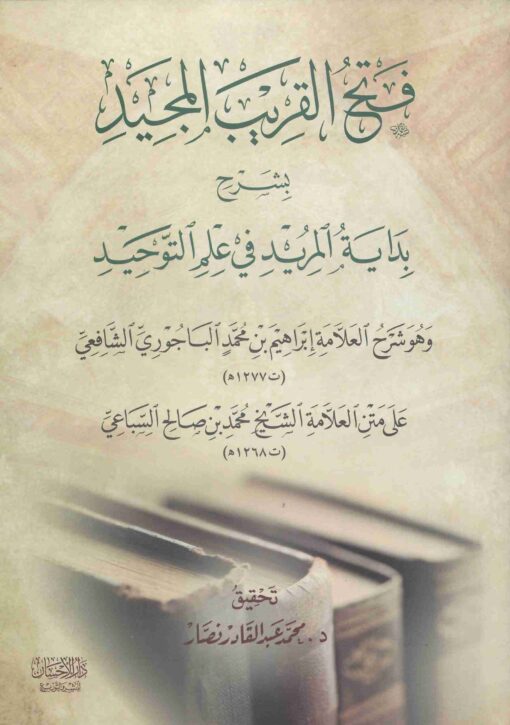 فَتْحُ القَرِيْبِ المَجِيْدِ
بِشَرْحِ
بِدَايَةُ المُرِيْدِ فِي عِلْمِ التَّوْحِيْدِ
وَهُوَ شَرْحُ العَلَّامَةِ إِبْرَاهِيْمَ بْنِ مُحَمَّدٍ البَاجُورِيِّ الشَّافِعِيِّ
(ت ١٢٧٧ه)
عَلَى مَتْنِ العَلَّامَةِ الشَّيْخِ مُحَمَّدِ بْنِ صَالِحٍ السِّبَاعِيِّ
(ت ١٢٦٨ه)
تَحْقِيْقُ
د. محمد عبد القادر نصار
دار الإحسان
للنشر والتوزيع